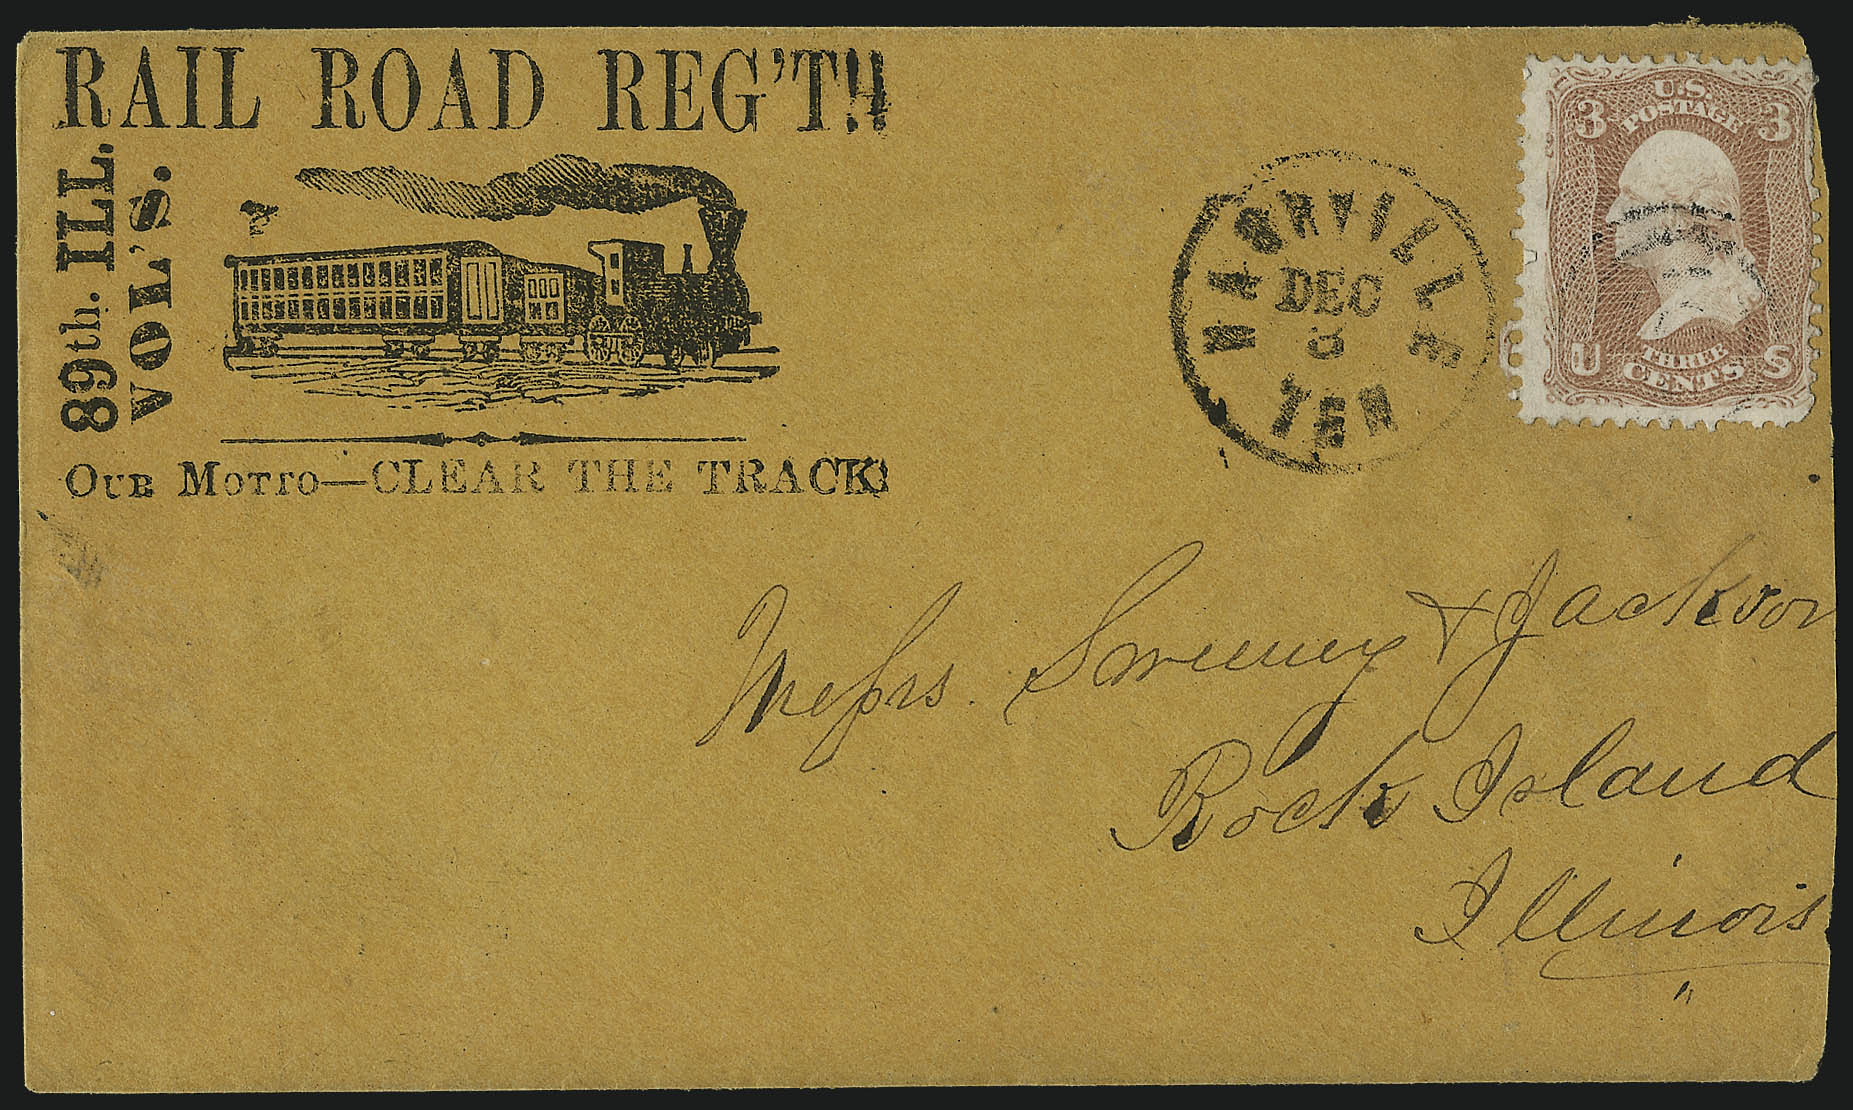 RAIL ROAD REG'T!!
89th. ILL.
VOL'S.
OUR MOTTO—CLEAR THE TRACK!
NASHVILLE
DEC
TEN
U.S.
POSTAGE
3 3
THREE
CENTS
U S
Messrs. Sweeney & Jackson
Rock Island
Illinois